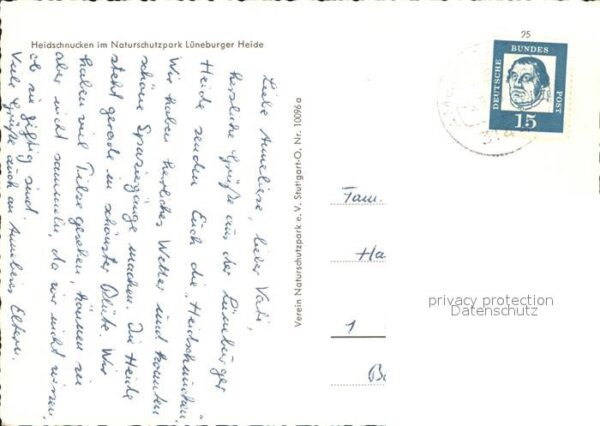 Heidschnucken im Naturschutzpark Lüneburger Heide
Liebe Anneliese, lieber Vati,
herzliche Grüße aus der Lüneburger
Heide senden Euch die "Heidschnucken".
Wir haben herrliches Wetter und konnten
schöne Spaziergänge machen. Die Heide
steht gerade in schönster Blüte. Wir
haben viel Pilze gesehen, können sie
aber nicht sammeln, da wir nicht wissen,
ob sie giftig sind.
Viele Grüße auch an Anneliese Eltern.
Verein Naturschutzpark e. V. Stuttgart-O, Nr. 10096a
25
DEUTSCHE
BUNDES
POST
15
Fam.
Ha
1
Be
privacy protection
Datenschutz